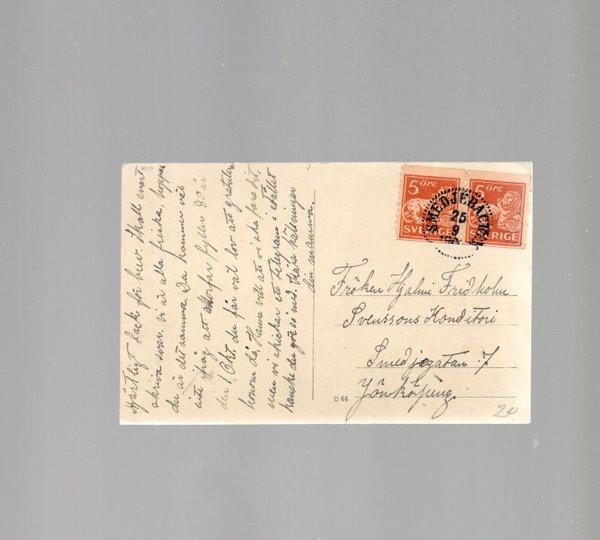 Hjärtligt tack för brev. Skall snart
skriva svar. vi är alla friska hoppas
du är det samma. Du kommer väl
inte ihåg att Morfar fyller 80 år
den 1 Okt. du får väl lov att gratulera
honom då, Hanna vill att vi ska fara dit
men vi skickar ett telegram i stället
kanske du gör så med. Kära hälsningar
din mamma.
5 ÖRE 5 ÖRE
SVERIGE SVERIGE
SMEDJEBACKEN
25
9
Fröken Hjalmi Fridholm
Svenssons Konditori
Smedjegatan 7
Jönköping.
O 64
20